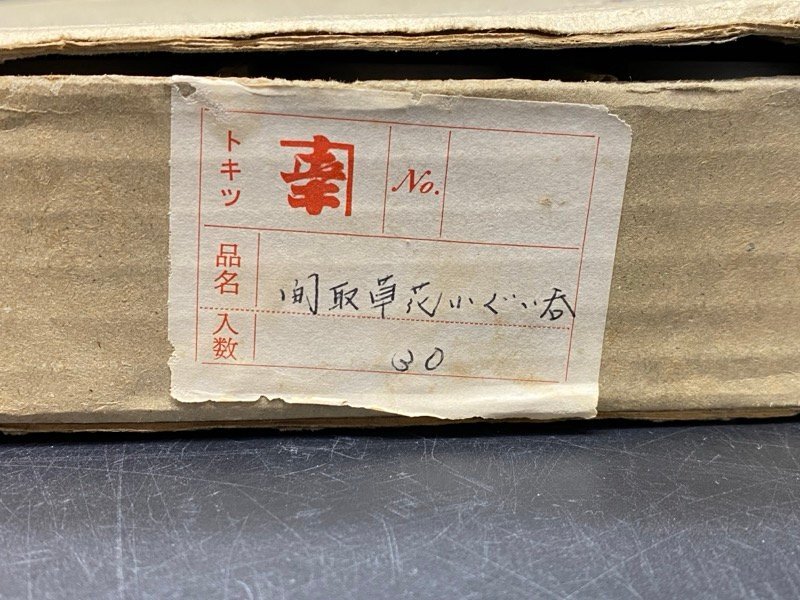 トキツ
幸
No.
品名
間取草花小ぐい呑
入数
30